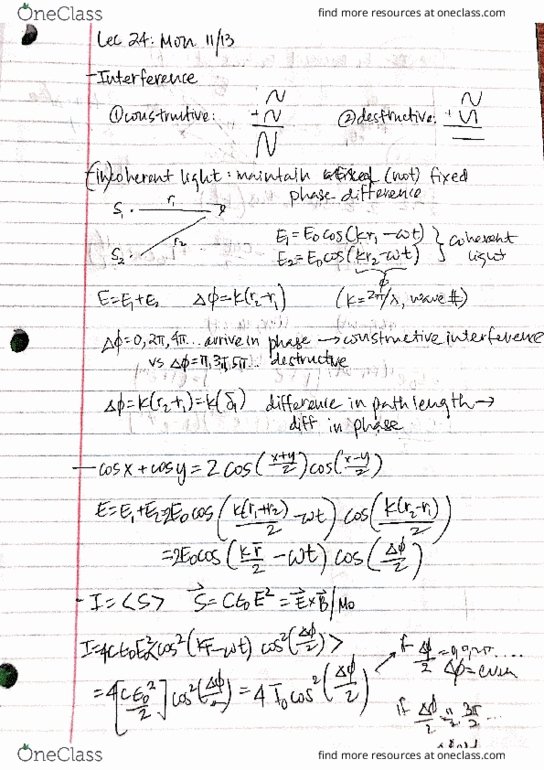 OneClass
find more resources at oneclass.com
Lec 24: Mon 11/13
- Interference
① constructive:
② destructive:
(in)coherent light: maintain (not) fixed
phase difference
S₁ r₁ P
S₂ r₂
E₁ = E₀ cos(kr₁ - ωt)
E₂ = E₀ cos(kr₂ - ωt) } coherent light
ϕ
E = E₁ + E₂ Δϕ = k(r₂-r₁) (k = 2π/λ, wave #)
Δϕ = 0, 2π, 4π... arrive in phase → constructive interference
vs Δϕ = π, 3π, 5π... destructive
Δϕ = k(r₂+r₁) = k(δ₁) difference in path length →
diff in phase
- cosx + cosy = 2 cos(x+y/2) cos(x-y/2)
E = E₁ + E₂ = 2E₀ cos(k(r₁+r₂)/2 - ωt) cos(k(r₂-r₁)/2)
= 2E₀ cos(kr̄/2 - ωt) cos(Δϕ/2)
- I = <S> S⃗ = Cε₀E² = E⃗×B⃗/μ₀
I = 4Cε₀E₀²<cos²(kr̄ - ωt) cos²(Δϕ/2)>
= 4[Cε₀²/2] cos²(Δϕ/2) = 4I₀ cos²(Δϕ/2)
if Δϕ/2 = 0, π, 2π ....
Δϕ = even
if Δϕ/2 = π/2, 3π/2 ...
OneClass
find more resources at oneclass.com